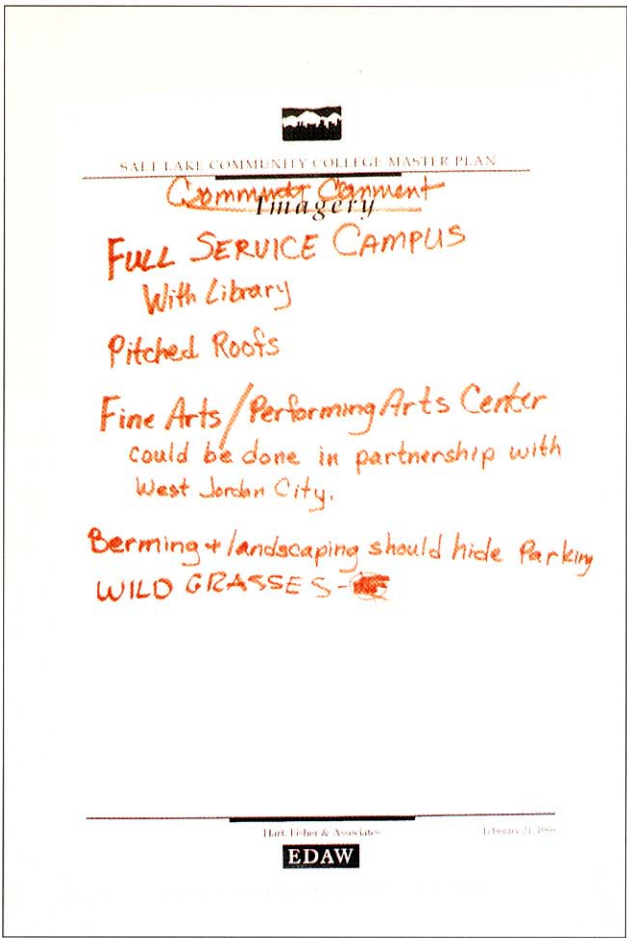 SALT LAKE COMMUNITY COLLEGE MASTER PLAN
Community Comment
Imagery
FULL SERVICE CAMPUS
With Library
Pitched Roofs
Fine Arts / Performing Arts Center
could be done in partnership with
West Jordan City.
Berming + landscaping should hide Parking
WILD GRASSES-
Hart, Fisher & Associates
February 21,
EDAW